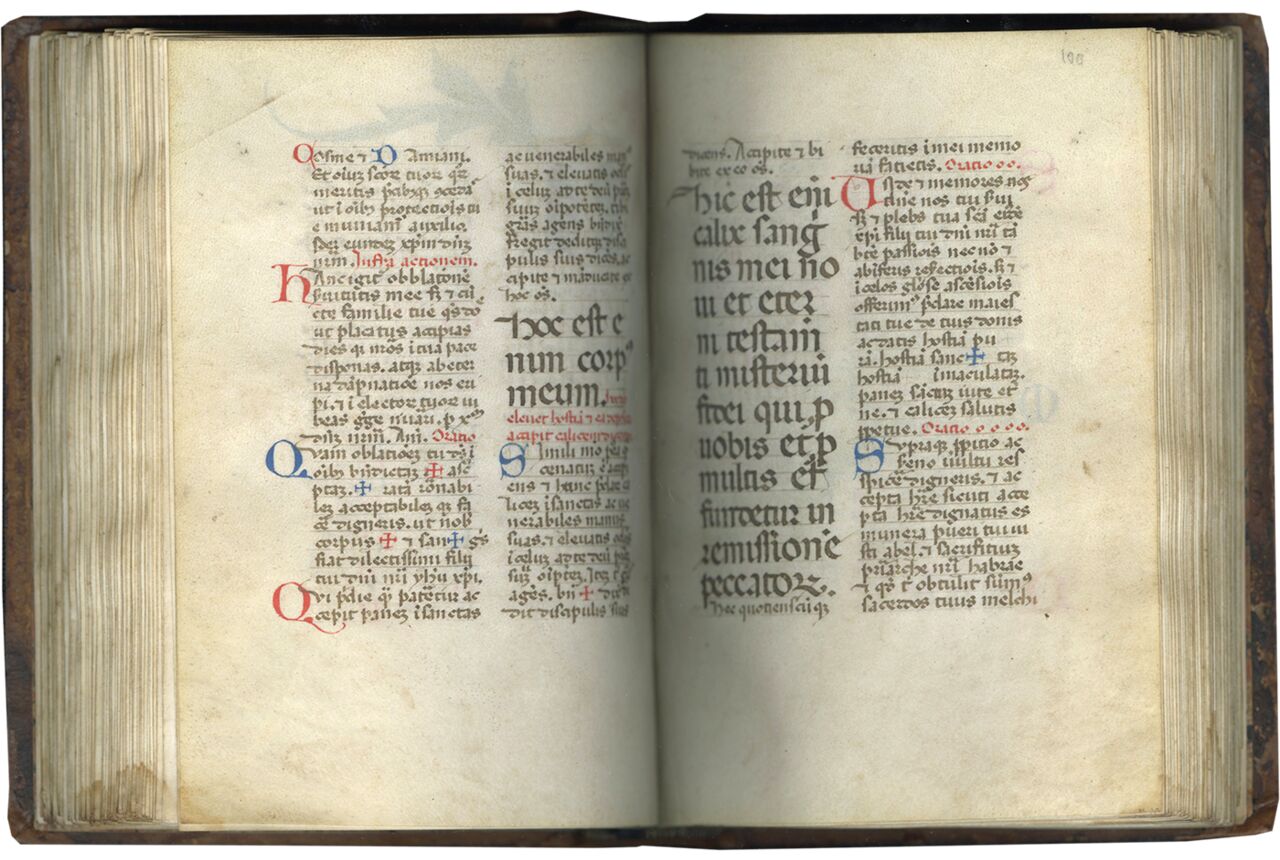 Cosme ⁊ Damiani.
Et oīuꝫ scōꝝ tuoꝝ qꝝ
meritis p̄cibqꝫ
ut ī oīb; protectiōis tu
e muniam̄ auxilio.
eundeꝫ xp̄m dn̄ꝫ
nrm̄. Infra actionem.
Hanc igit̄ obblationē
ẜuitutis mee ẜꝫ ⁊ cū
cte familie tue qs̄ do
ut placatus accipias
dies qꝫ nr̄os ī tua pace
disponas. atqꝫ ab eter
na dāpnatiōe nos eri
pi. ⁊ ī electoꝝ tuoꝝ iu
beas gge nu̅ari. p xp̄m
dn̄m nrm̄. Am̄. Oratio
Quam oblationeꝫ tu ds̄ ī
oīb; bn̄dictaꝫ ✠ asc̄
ptaꝫ. ✠ ratā rōnabi
leꝫ acceptabileqꝫ fa
cē digneris. ut nob̄
corpus ✠ ⁊ san✠gs̄
fiat dilectissimi filij
tui dn̄i nr̄i yhu xp̄i.
Qui pdie qꝫ pateretur ac
cepit paneꝫ ī sanctas
ac venerabiles man
suas. ⁊ elevatis oc
ī celuꝫ ad te deū p
suuꝫ oīpotēteꝫ. tibi
grās agens bn̄dix
fregit deditqꝫ disc
pulis suis dicēs. ac
cipite ⁊ māducate
hoc os̄.
Hoc est e
nim corpꝰ
meum.
elevet hostiā ⁊
accipit calicem
Simili mo
cenatuꝫ ē
ens ⁊ hunc
liceꝫ ī sanctas ac ve
nerabiles manus
suas. ⁊ elevatis oc
ī celuꝫ ad te deū p
suuꝫ oīpteꝫ. Iteꝫ t g
agēs. bn̄ ✠
dit discipulis suis
dicens. Accipite ⁊ bi
bite ex eo os̄.
Hic est eni̅
calix sang
nis mei no
ui et eter
ni testam̄
ti misteriū
fidei qui p
uobis et p
multis ef
fundetur in
remissione
peccatoꝝ.
Hec quotiensciqꝫ
feceritis ī mei memo
riā facietis. Oratio o o.
Unde ⁊ memores
dn̄e nos tui ẜui
ẜꝫ ⁊ plebs tua scā eiꝰdē
xp̄i filij tui dn̄i nr̄i tā
bt̄e passiōis necnō ⁊
ab īferis refectiōis. ẜꝫ ⁊
ī celos gl̄ose ascēsiōis
offerimꝰ p̄clare maies
tati tue de tuis donis
ac datis hostiā pu
rā. hostiā sanc✠ tā
hostiā īmaculataꝫ.
paneꝫ sāctuꝫ uite et̄
ne. ⁊ caliceꝫ salutis
ppetue. Oratio o o o o.
Supraqꝫ ppitio ac
sereno uultu res
picē digneris. ⁊ ac
cepta hr̄e sicuti acce
pta hr̄e dignatus es
munera pueri tui iu
sti abel. ⁊ sacrificiuꝫ
priarche nr̄i habrae
⁊ qd̄ t̄ obtulit sūmꝰ
sacerdos tuus melchi
100